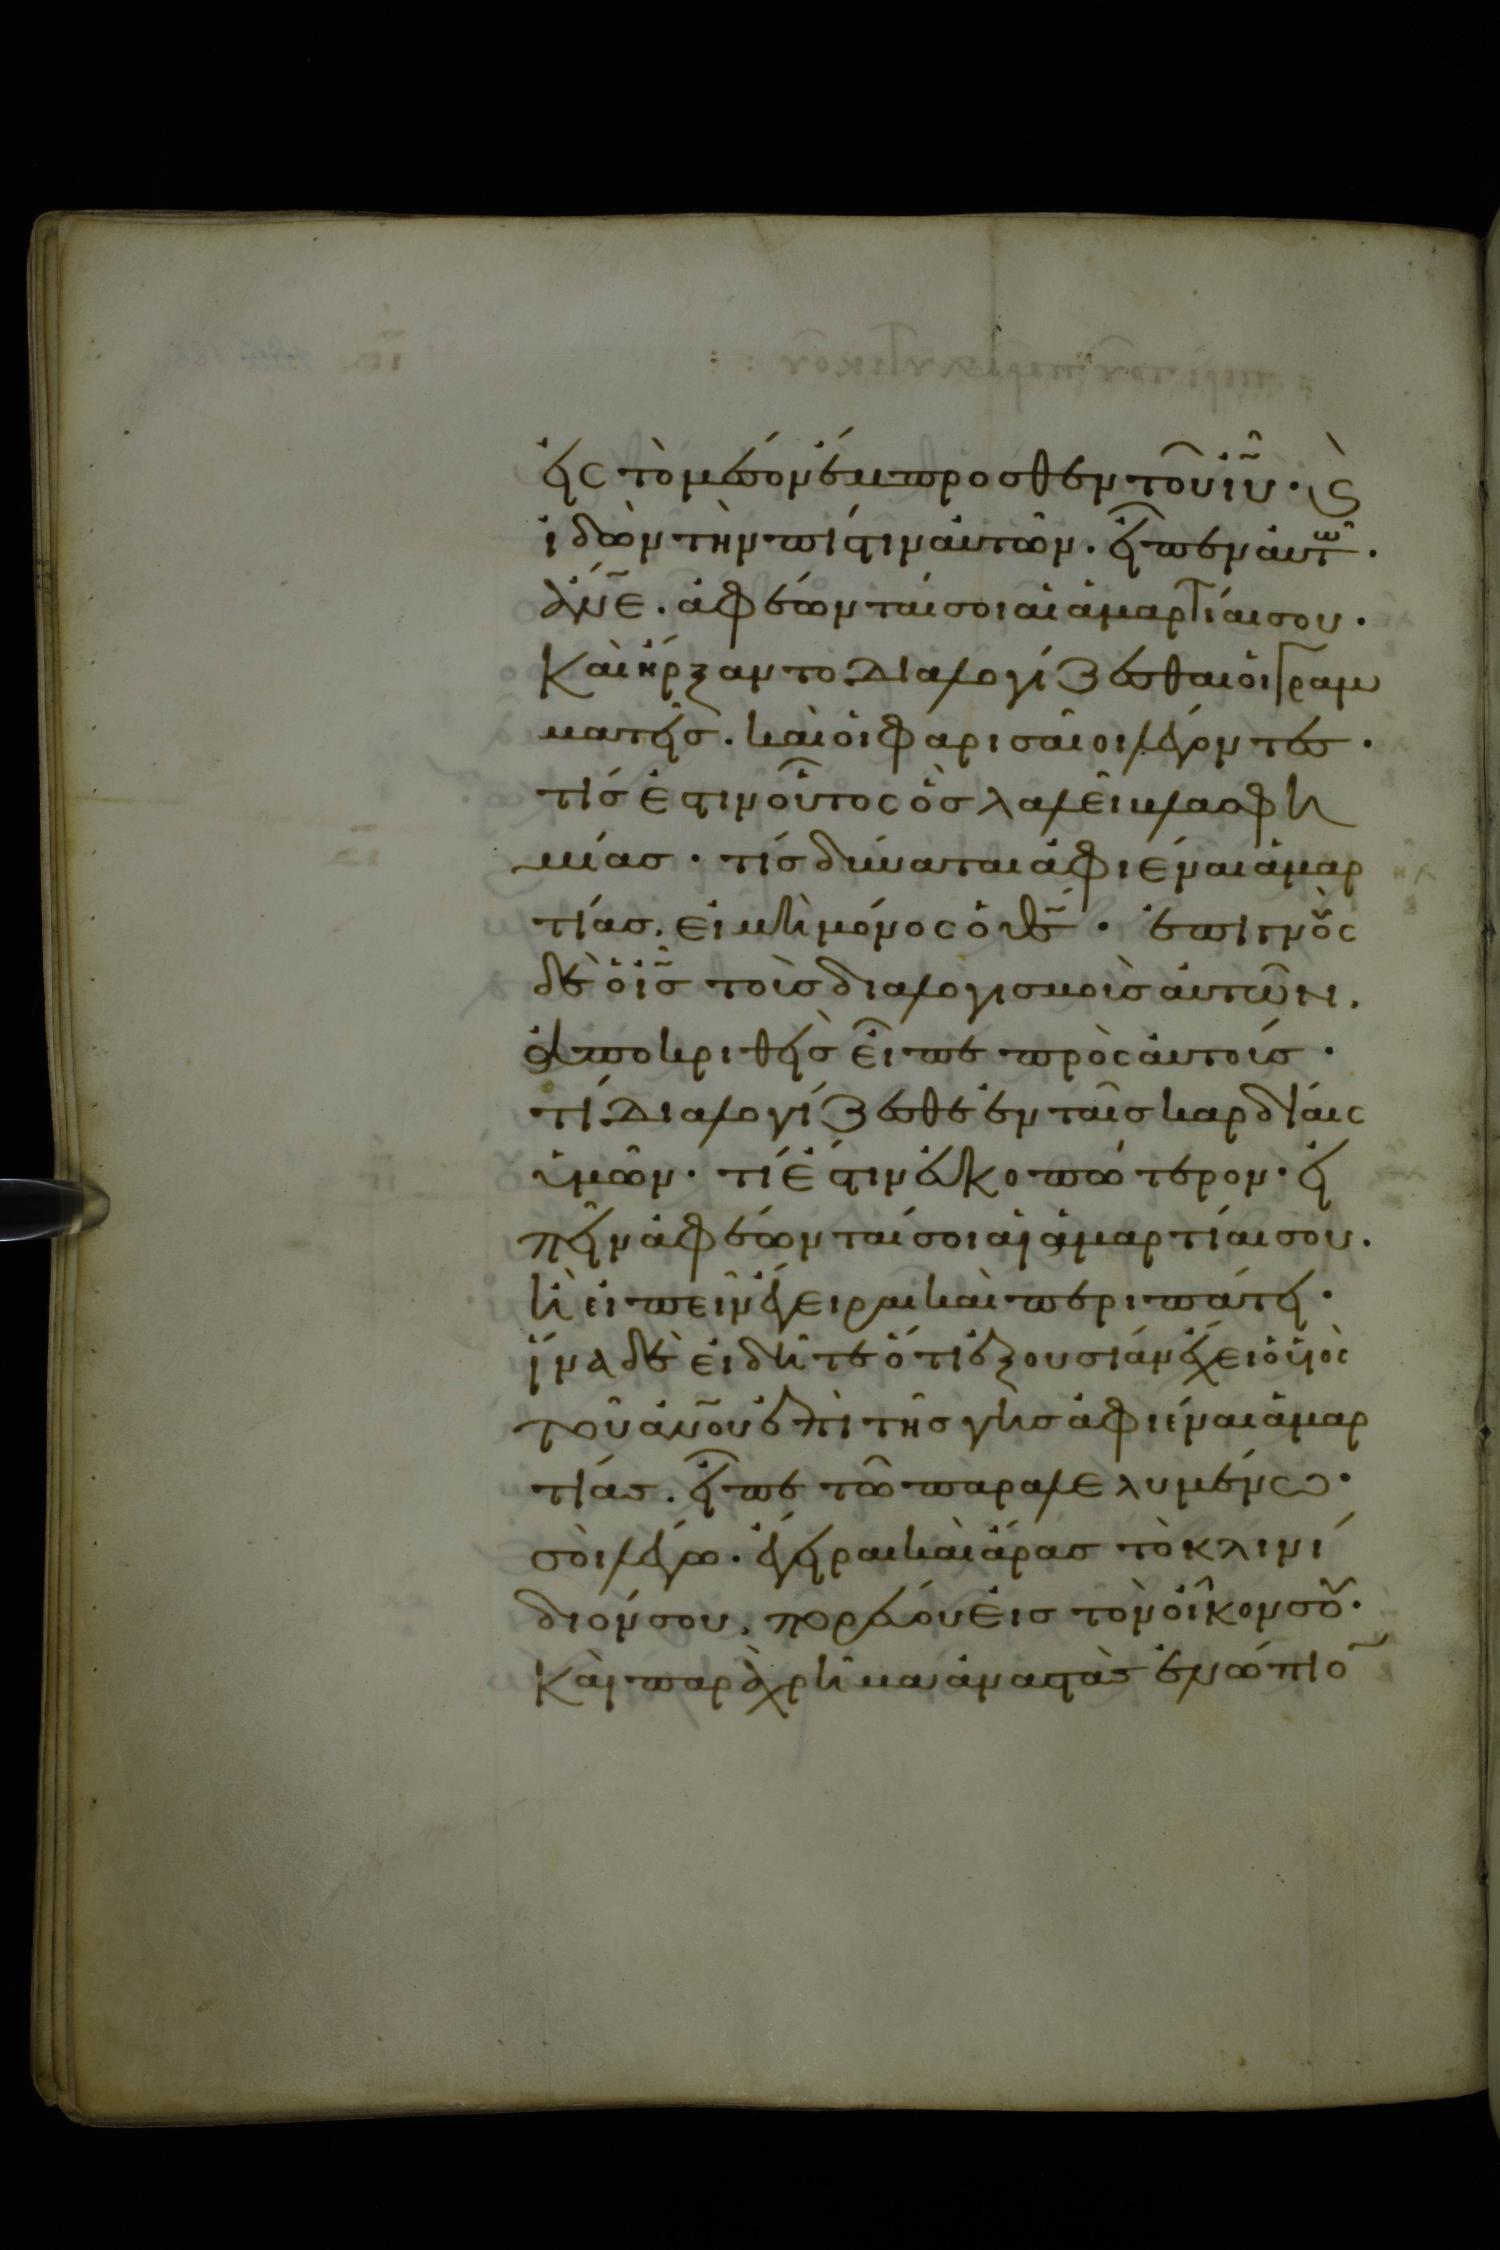 εις το μεσον έμπροσθεν τοῦ ἰῦ· ϗ
ἰδὼν τὴν πίστιν αὐτῶν. εἶπεν αὐτῶ.
ἄνε. ἀφέωνταί σοι αἱ ἁμαρτίαι σου.
Καὶ ἤρξαντο διαλογίζεσθαι οἱ γραμ
ματεῖσ. καὶ οἱ φαρισαῖοι λέγοντεσ.
τίσ ἐστιν οὗτος ὃσ λαλεῖ βλασφη
μίασ. τίσ δύναται ἀφιέναι ἁμαρ
τίασ. εἰ μὴ μόνος ὁ θσ. ἐπιγνοὺς
δὲ ὁ ἰσ τοὺσ διαλογισμοὺσ αὐτῶν.
ἀποκριθεὶσ εἶπε πρὸς αὐτούσ.
τί διαλογίζεσθε ἐν ταῖσ καρδίαις
ὑμῶν. τί ἐστιν εὐκοπώτερον. εἰ
πεῖν ἀφέωνταί σοι αἱ ἁμαρτίαι σου.
ἢ εἰπεῖν ἔγειραι καὶ περιπάτει.
ἵνα δὲ εἰδῆτε ὅτι ἐξουσίαν ἔχει ὁ υἱὸς
τοῦ ἀνου ἐπὶ τῆσ γῆσ ἀφιέναι ἁμαρ
τίασ. εἶπε τῶ παραλελυμένω.
σοὶ λέγω. ἔγειραι καὶ ἄρασ τὸ κλινί
διόν σου. πορεύου εἰσ τὸν οἶκον σου.
Καὶ παραχρῆμα ἀναστὰσ ἐνώπιο